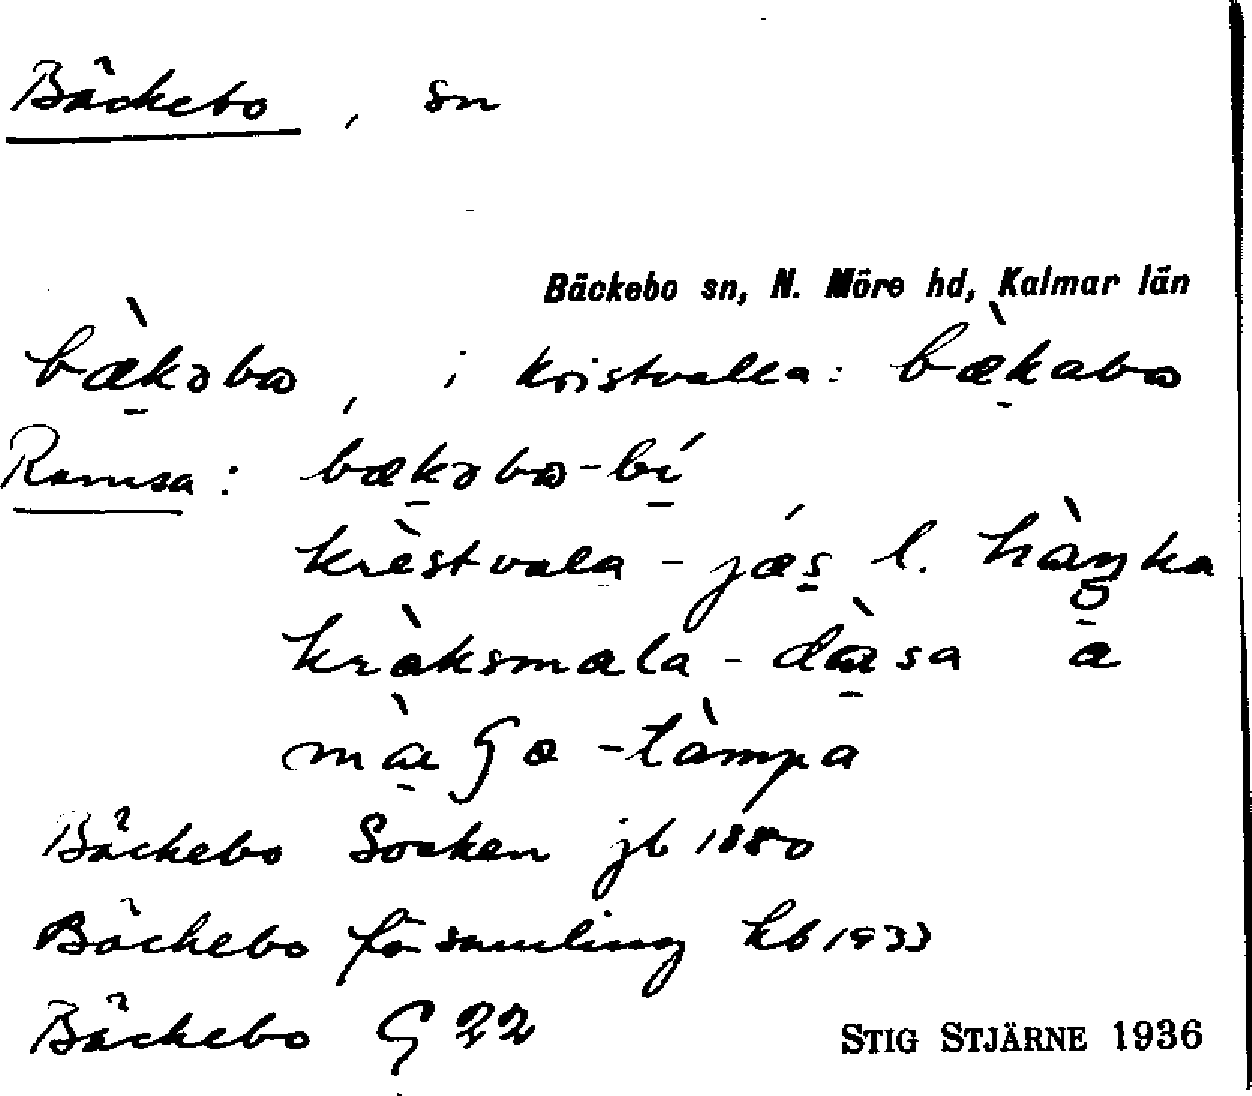 Bäckebo, sn
Bäckebo sn, N. Möre hd, Kalmar län
bæ̀kəbω, i Kristvalla: bæ̀kabω
Ramsa: bækəbω-bí
krèstvala - jǽs l. hàŋka
kràksmala - dàsa
a
-tàmpa
Bäckebo Socken jb 1880
Bäckebo församling kb 1933
Bäckebo G 22
STIG STJÄRNE 1936